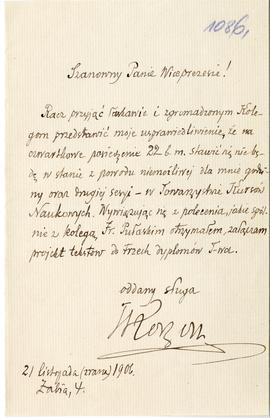 1086,
Szanowny Panie Wiceprezesie!
Racz przyjąć łaskawie i zgromadzonym Kole-
gom przedstawić moje usprawiedliwienie, że na
czwartkowe posiedzenie 22 b.m. stawić się nie bę-
dę w stanie z powodu niemożliwej dla mnie godzi-
ny oraz drugiej sesyi – w Towarzystwie Kursów
Naukowych. Wywiązując się z polecenia, jakie spól-
nie z kolegą Fr. Pułaskim otrzymałem, załączam
projekt tekstów do trzech dyplomów T-wa.
oddany sługa
TKorzon
21 listopada (zrana) 1906.
Żabia, 4.